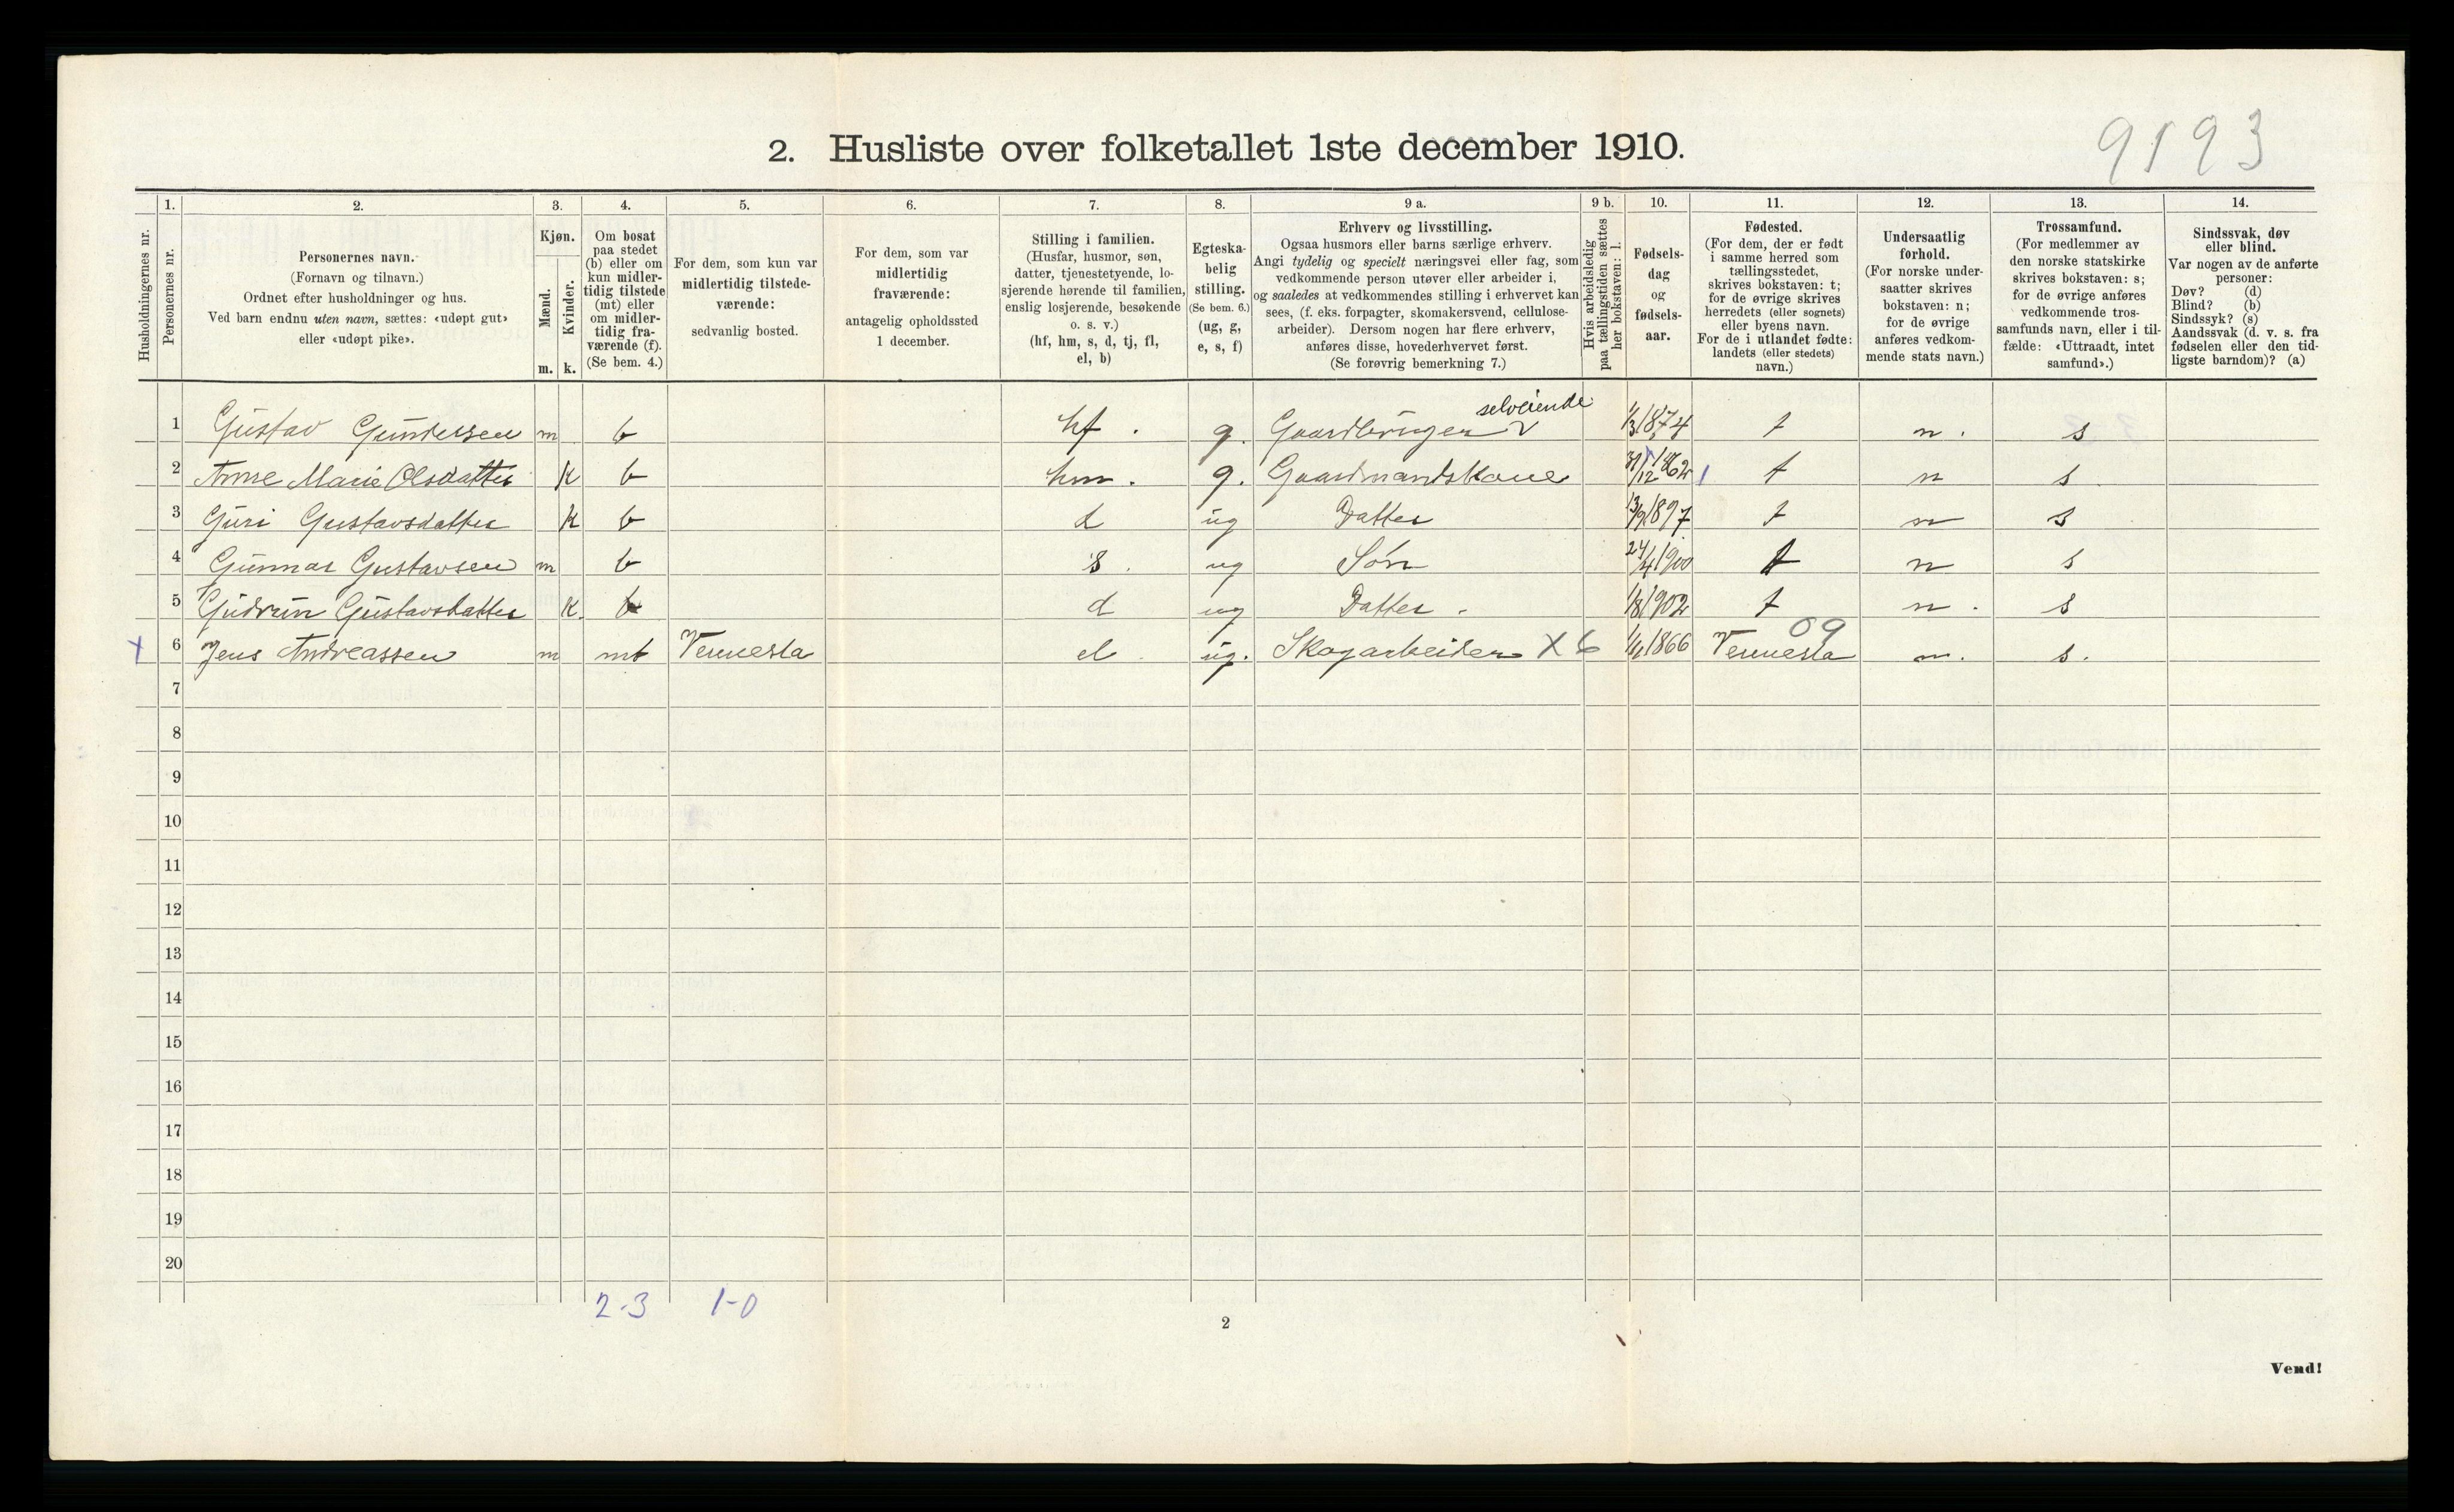 9193
2. Husliste over folketallet 1ste december 1910.
Husholdningernes nr.
1.
Personernes nr.
2.
Personernes navn.
(Fornavn og tilnavn.)
Ordnet efter husholdninger og hus.
Ved barn endnu uten navn, sættes: «udøpt gut»
eller «udøpt pike».
3.
Kjøn.
Mænd.
Kvinder.
m. k.
4.
Om bosat
paa stedet
(b) eller om
kun midler-
tidig tilstede
(mt) eller
om midler-
tidig fra-
værende (f).
(Se bem. 4.)
5.
For dem, som kun var
midlertidig tilstede-
værende:
sedvanlig bosted.
6.
For dem, som var
midlertidig
fraværende:
antagelig opholdssted
1 december.
7.
Stilling i familien.
(Husfar, husmor, søn,
datter, tjenestetyende, lo-
sjerende hørende til familien,
enslig losjerende, besøkende
o. s. v.)
(hf, hm, s, d, tj, fl,
el, b)
8.
Egteska-
belig
stilling.
(Se bem. 6.)
(ug, g,
e, s, f)
9 a.
Erhverv og livsstilling.
Ogsaa husmors eller barns særlige erhverv.
Angi tydelig og specielt næringsvei eller fag, som
vedkommende person utøver eller arbeider i,
og saaledes at vedkommendes stilling i erhvervet kan
sees, (f. eks. forpagter, skomakersvend, cellulose-
arbeider). Dersom nogen har flere erhverv,
anføres disse, hovederhvervet først.
(Se forøvrig bemerkning 7.)
9 b.
Hvis arbeidsledig
paa tællingstiden sættes
her bokstaven: l.
10.
Fødsels-
dag
og
fødsels-
aar.
11.
Fødested.
(For dem, der er født
i samme herred som
tællingsstedet,
skrives bokstaven: t;
for de øvrige skrives
herredets (eller sognets)
eller byens navn.
For de i utlandet fødte:
landets (eller stedets)
navn.)
12.
Undersaatlig
forhold.
(For norske under-
saatter skrives
bokstaven: n;
for de øvrige
anføres vedkom-
mende stats navn.)
13.
Trossamfund.
(For medlemmer av
den norske statskirke
skrives bokstaven: s;
for de øvrige anføres
vedkommende tros-
samfunds navn, eller i til-
fælde: «Uttraadt, intet
samfund».)
14.
Sindssvak, døv
eller blind.
Var nogen av de anførte
personer:
Døv? (d)
Blind? (b)
Sindssyk? (s)
Aandssvak (d. v. s. fra
fødselen eller den tid-
ligste barndom)? (a)
selveiende
1 Gustav Gundersen m b hf. g. Gaardbruger 1/3 1874 t n. s
2 Anne Marie Olsdatter k b hm. g. Gaardmandskone 31/12 1862 t n s
3 Guri Gustavsdatter k b d ug Datter 13/9 1897 t n s
4 Gunnar Gustavsen m b s. ug Søn 24/4 1900 t n s
5 Gudrun Gustavsdatter k. b d ug Datter. 1/8 1902 t n. s
09
x 6 Jens Andreassen m mt Vennesla el ug. Skogarbeider X 6 1866 Vennesla n. s.
7
8
9
10
11
12
13
14
15
16
17
18
19
20
2-3 1-0
2
Vend!